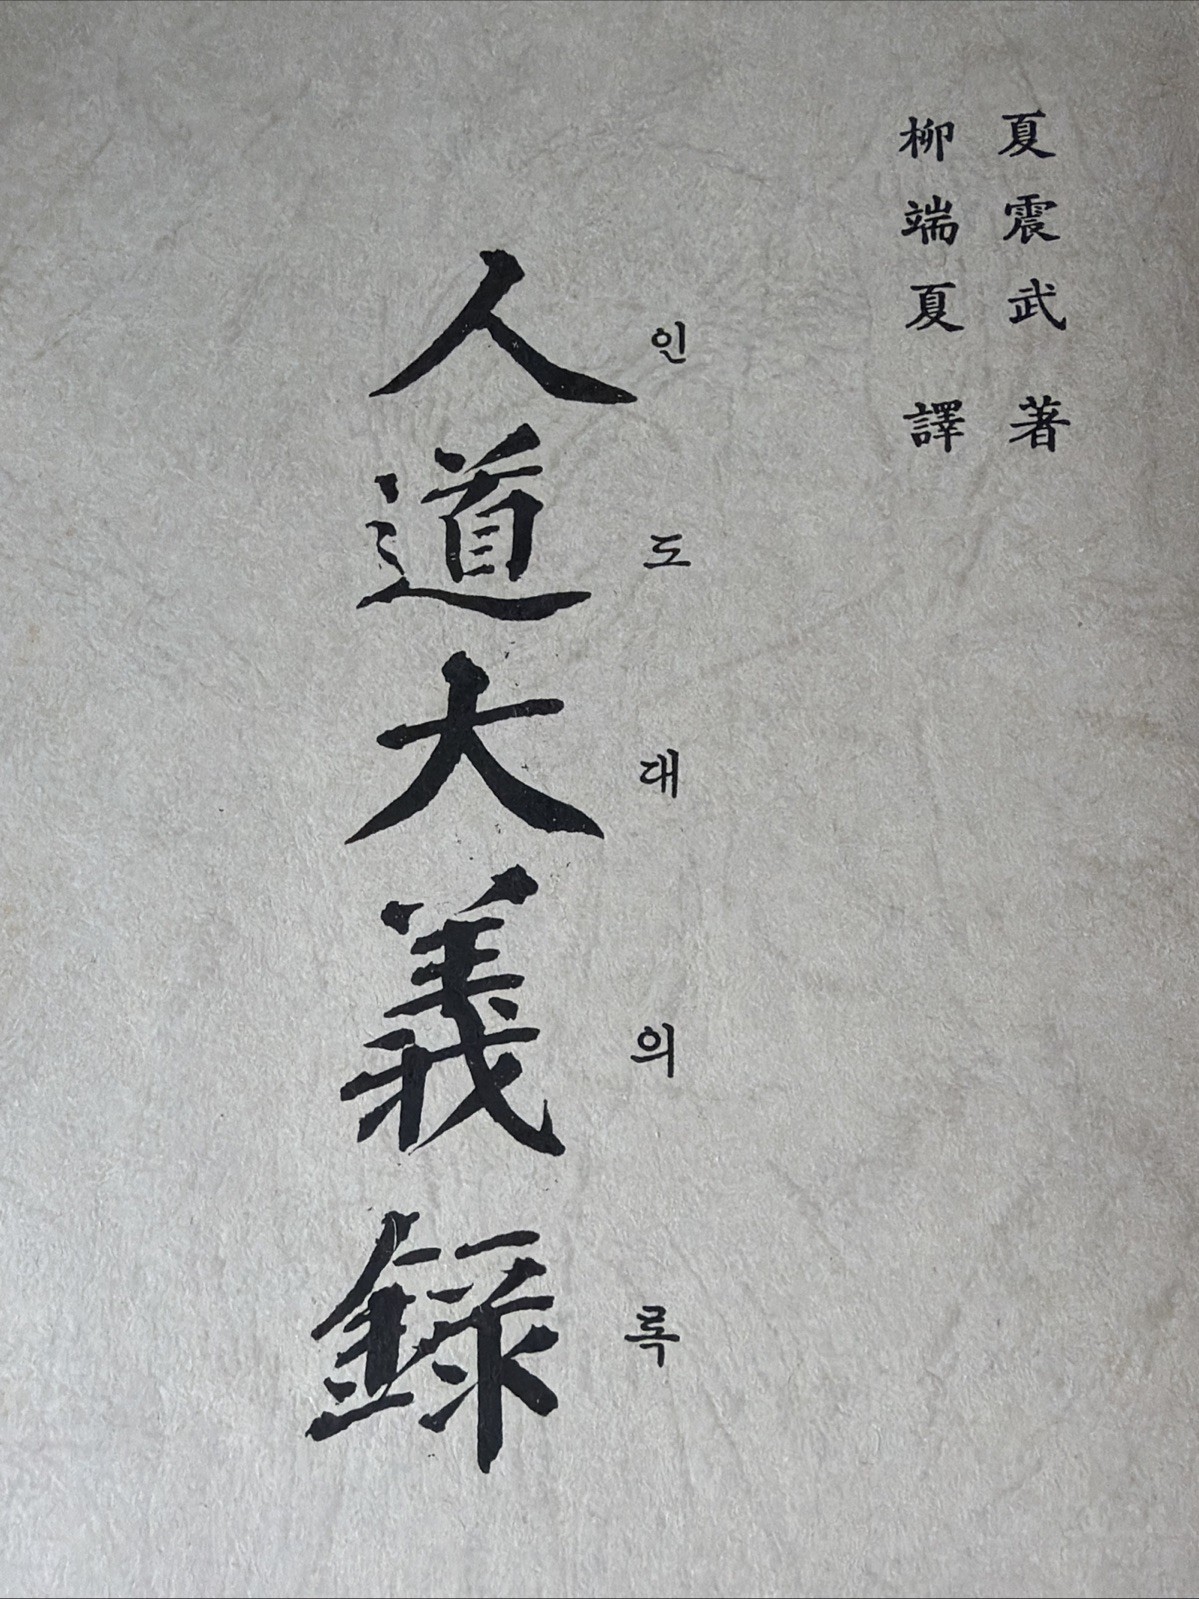 夏震武 著
柳端夏 譯
人道大義錄
인도대의록